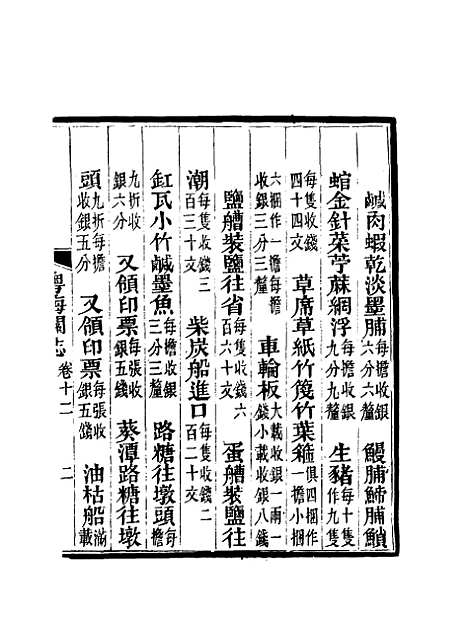 鹹肉蝦乾淡墨脯每擔收銀六分六釐 鰻脯脯鎖
金針菜苧蔴網浮每擔收銀九分九釐 生豬每十隻作九隻
每隻收錢四十四文 草席草紙竹筏竹葉箱俱四捆作一擔小捆
六捆作一擔收銀三分三釐 車輪板大載收銀一兩一錢小載收銀八錢
鹽艚裝鹽往省每隻收錢六百六十文 蛋艚裝鹽往
潮每隻收錢三百三十文 柴炭船進口每隻收錢二百二十文
缸瓦小竹鹹墨魚每擔收銀三分三釐 路糖往墩頭每擔
九折收銀六分 又領印票每張收銀五錢 葵潭路糖往墩
頭九折每擔收銀五分 又領印票每張收銀五錢 油枯船滿載
粵海關志 卷十二 二